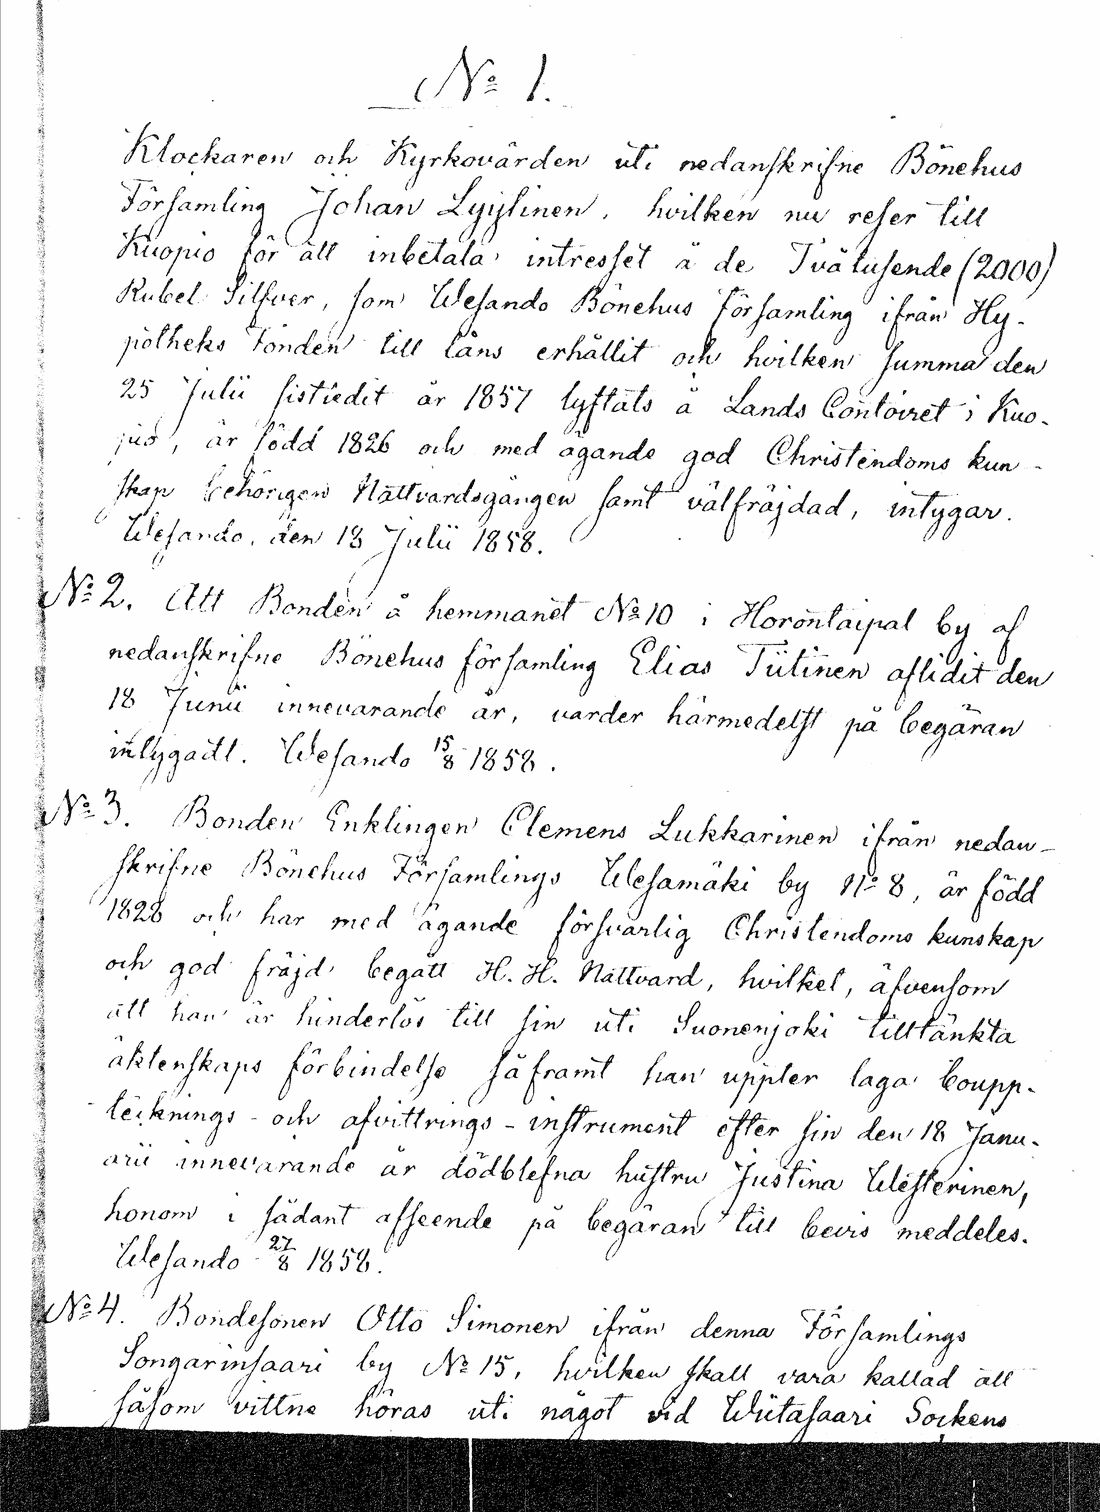 No 1.
Klockaren och Kyrkovärden uti nedanskrifne Bönehus
Församling Johan Lyytinen, hvilken nu reser till
Kuopio för att inbetala intresset å de Tvåtusende (2000)
Rubel Silfver, som Wesando Bönehus församling ifrån Hy-
potheks Fonden till låns erhållit och hvilken summa den
25 Julii sistledit år 1857 lyftats å Lands Contoiret i Kuo-
pio, är född 1826 och med ägande god Christendoms kun-
skap behörigen Nattvardsgången samt välfräjdad, intygar.
Wesando, den 18 Julii 1858.
No 2. Att Bonden å hemmanet No 10 i Horontaipal by af
nedanskrifne Bönehus församling Elias Tiitinen aflidit den
18 Junii innevarande år, varder härmedelst på begäran
intygadt. Wesando 15/8 1858.
No 3. Bonden Enklingen Clemens Lukkarinen ifrån nedan-
skrifne Bönehus Församlings Wesamäki by No 8, är född
1828 och har med ägande försvarlig Christendoms kunskap
och god fräjd begått H. H. Nattvard, hvilket, äfvensom
att han är hinderlös till sin uti Suonenjoki tilltänkta
äktenskaps förbindelse såframt han uppter laga boupp-
tecknings- och afvittrings-instrument efter sin den 18 Janu-
arii innevarande år dödblefna hustru Justina Westerinen,
honom i sådant afseende på begäran till bevis meddeles.
Wesando 27/8 1858.
No 4. Bondesonen Otto Simonen ifrån denna Församlings
Songarinsaari by No 15, hvilken skall vara kallad att
såsom vittne höras uti något vid Wiitasaari Sockens